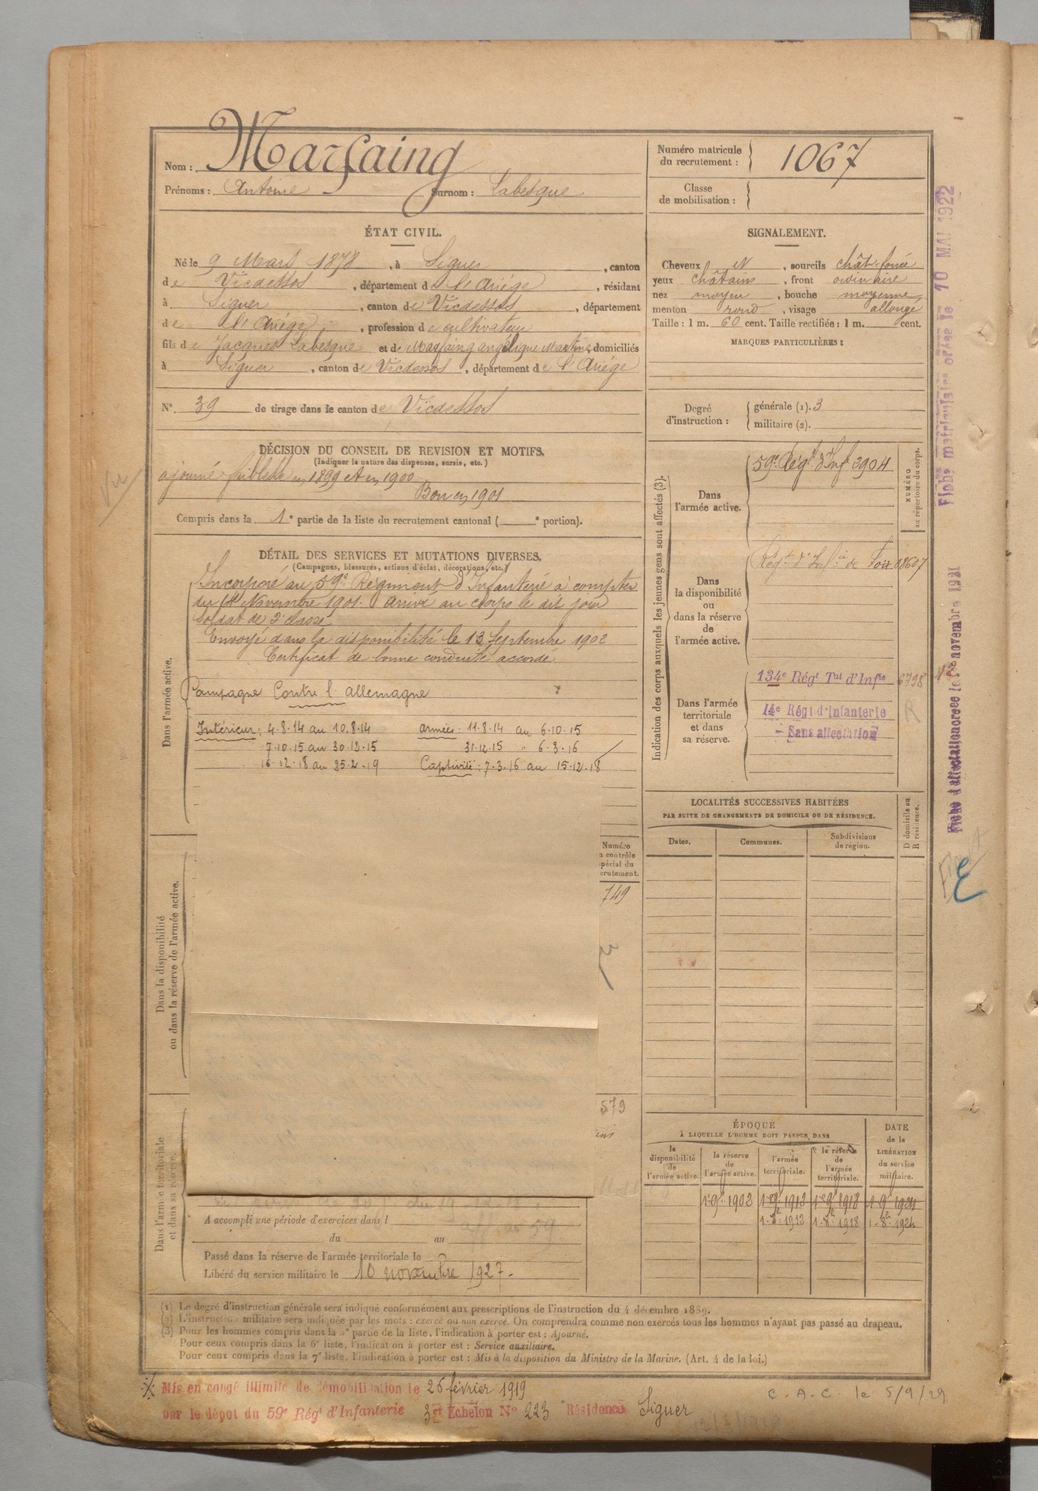 Nom : Marfaing
Prénoms : Antoine Surnom : Labesque
Numéro matricule du recrutement : 1067
Classe de mobilisation :
ÉTAT CIVIL.
Né le 9 Mars 1878, à Siguer, canton
de Vicdessos, département de l'Ariège, résidant
à Siguer, canton de Vicdessos, département
de l'Ariège, profession de cultivateur
fils de Jacques Labesque et de Marfaing angélique Martine, domiciliés
à Siguer, canton de Vicdessos, département de l'Ariège
N° 39 de tirage dans le canton de Vicdessos
SIGNALEMENT.
Cheveux N, sourcils chât. foncé
yeux châtains, front ordinaire
nez moyen, bouche moyenne
menton rond, visage allongé
Taille : 1 m. 60 cent. Taille rectifiée : 1 m. cent.
MARQUES PARTICULIÈRES :
Degré d'instruction : générale (1). 3
militaire (2).
DÉCISION DU CONSEIL DE REVISION ET MOTIFS.
(Indiquer la nature des dispenses, sursis, etc.)
Vu
ajourné faiblesse en 1899 et en 1900
Bon en 1901
Compris dans la 1e partie de la liste du recrutement cantonal ( e portion).
DÉTAIL DES SERVICES ET MUTATIONS DIVERSES.
(Campagnes, blessures, actions d'éclat, décorations, etc.)
Dans l'armée active.
Incorporé au 59e Régiment d'Infanterie à compter
du 14 Novembre 1901. Arrivé au corps le dit jour
Soldat de 2e classe
Envoyé dans la disponibilité le 13 Septembre 1902
Certificat de bonne conduite accordé
Campagne Contre l'allemagne
Intérieur : 4.8.14 au 10.8.14 armée : 11.8.14 au 6.10.15
7.10.15 au 30.12.15 31.12.15 " 6.3.16
16.12.18 au 25.2.19 Captivité : 7.3.16 au 15.12.18
Dans la disponibilité ou dans la réserve de l'armée active.
Dans l'armée territoriale et dans sa réserve.
Numéro
contrôle
spécial du
recrutement.
749
579
A accompli une période d'exercices dans l
du au
Passé dans la réserve de l'armée territoriale le
Libéré du service militaire le 10 novembre 1927.
Indication des corps auxquels les jeunes gens sont affectés (3).
NUMÉRO au répertoire du corps.
Dans l'armée active.
59e Régt d'Inf 3904
Dans la disponibilité ou dans la réserve de l'armée active.
Régt d'Infie de Foix
Dans l'armée territoriale et dans sa réserve.
134e Régt Tal d'Infie 6798
14e Régt d'Infanterie R
Sans affectation
LOCALITÉS SUCCESSIVES HABITÉES
PAR SUITE DE CHANGEMENTS DE DOMICILE OU DE RÉSIDENCE.
Dates. Communes. Subdivisions de région. D domicile ou R résidence.
ÉPOQUE
À LAQUELLE L'HOMME DOIT PASSER DANS
la disponibilité de l'armée active. la réserve de l'armée active. l'armée territoriale. la réserve de l'armée territoriale.
DATE de la LIBÉRATION du service militaire.
1.9bre 1902 1.9bre 1912 1.9bre 1918 1.9bre 1924
1.8bre 1912 1.8bre 1918 1.8bre 1924
(1) Le degré d'instruction générale sera indiqué conformément aux prescriptions de l'instruction du 4 décembre 1889.
(2) L'instruction militaire sera indiquée par les mots : exercé ou non exercé. On comprendra comme non exercés tous les hommes n'ayant pas passé au drapeau.
(3) Pour les hommes compris dans la 2e partie de la liste, l'indication à porter est : Ajourné.
Pour ceux compris dans la 6e liste, l'indication à porter est : Service auxiliaire.
Pour ceux compris dans la 7e liste, l'indication à porter est : Mis à la disposition du Ministre de la Marine. (Art. 4 de la loi.)
Mis en congé illimité de démobilisation le 26 février 1919
par le dépot du 59e Régt d'Infanterie 3e Echelon N° 223 Résidence Siguer
C.A.C. le 5/9/29
Fiche matriculaire créée le 10 MAI 1922
Fiche d'affectation créée le novembre 1921